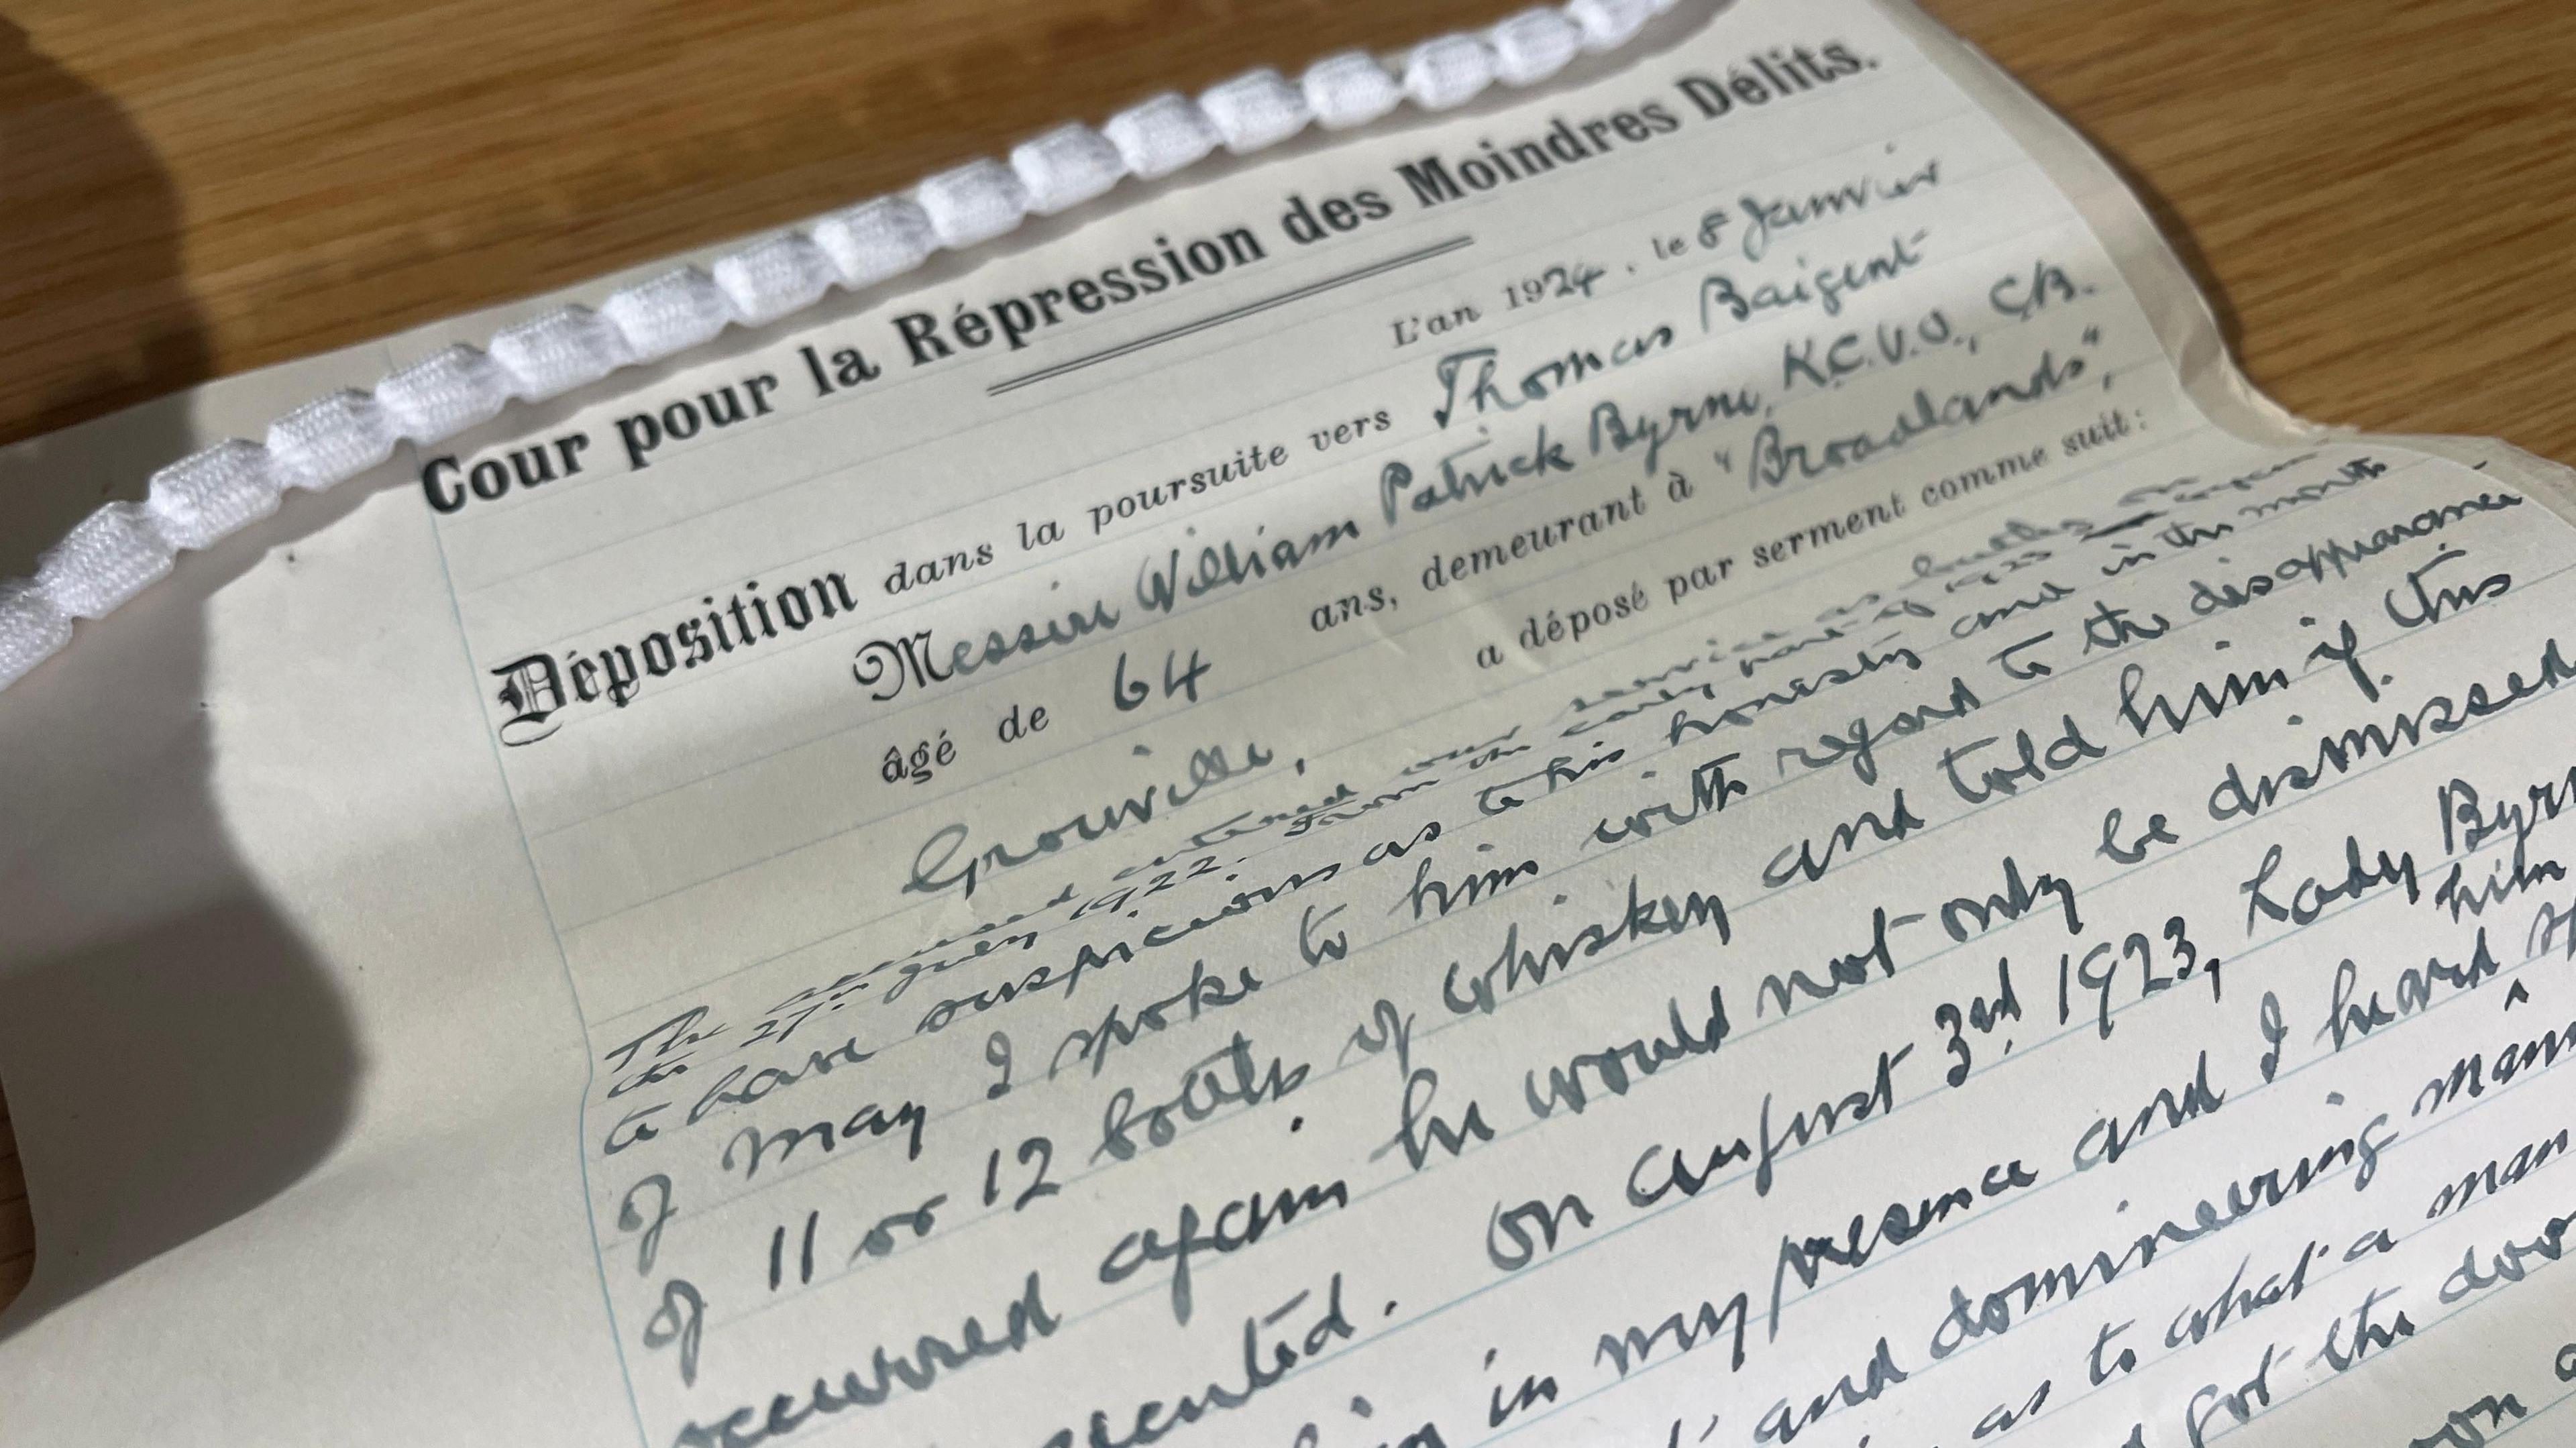 Cour pour la Répression des Moindres Délits.
L'an 1924, le 8 Janvier
Déposition dans la poursuite vers Thomas Baigent
Messire William Patrick Byrne, K.C.V.O., C.B.
âgé de 64 ans, demeurant à "Broadlands",
Grouville, a déposé par serment comme suit:
The accused entered our service as butler on
the 27th 1922. from the early part of 1923 I began
to have suspicions as to his honesty and in the month
of May I spoke to him with regard to the disappearance
of 11 or 12 bottles of whiskey and told him if this
occurred again he would not only be dismissed
On August 3rd 1923, Lady
in my presence and I heard him
and domineering
as to what a man
got the door